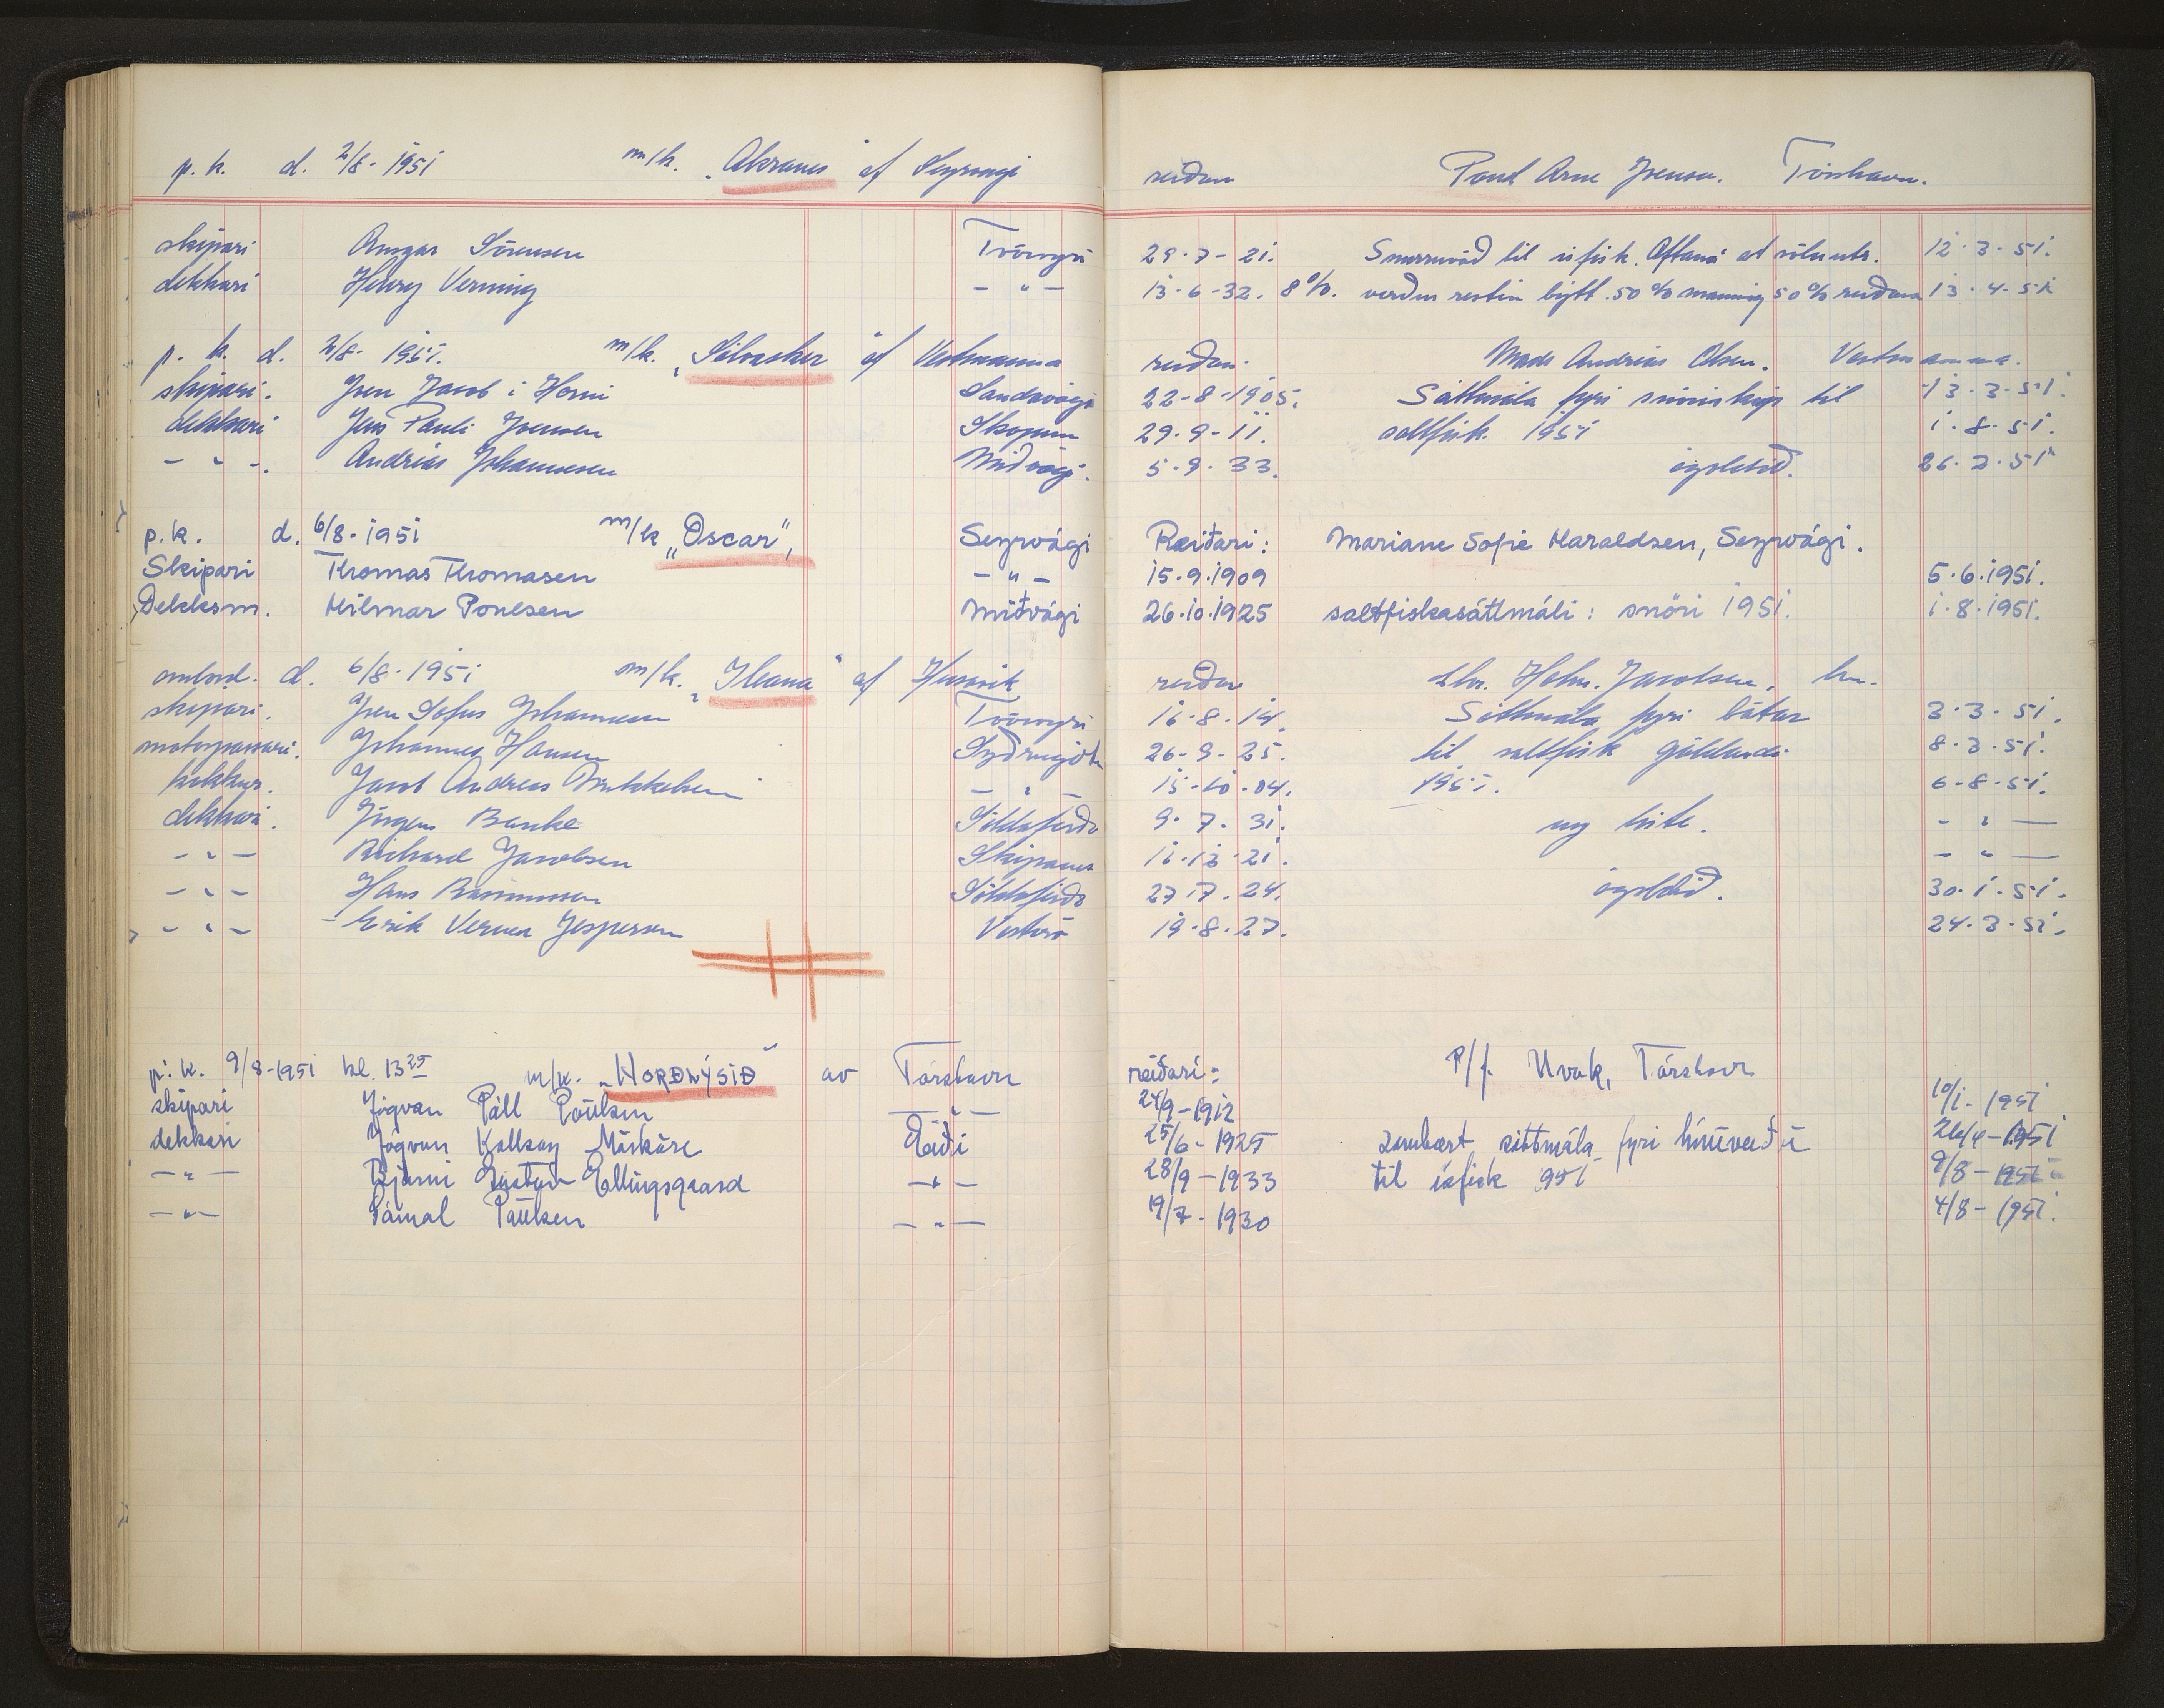 p. k. d. 2/8 - 1951 m/k. „Akranes“ af Seyrvági reiðari Poul Arne Jensen. Tórshavn.
skipari Ansgar Sörensen Tvöroyri 29-7-21. Snurruvád til ísfisk. Aftaná at 12-3-51.
dekkari Henry Verming - " - 13-6-32. 8%. verður restin býtt. 50% manning 50% reiðara 13-4-51
p. k. d. 2/8- 1951. m/k. „ “ af Vestmanna reiðari Mads Andrias Olsen. Vestmanna.
skipari. Jens Jacob i Horni Sandavági 22-8-1905. Sáttmála fyri til 13-3-51.
dekkari Jens Pauli Joensen Skopun 29-9-11. saltfisk 1951 1-8-51.
- " -. Andrias Johannesen Miðvági. 5-9-33. ógoldið. 26-2-51
p.k. d. 6/8-1951 m/k „Oscar“, Seyrvági Reiðari: Mariane Sofie Haraldsen, Seyrvági.
Skipari Thomas Thomasen - " - 15.9.1909 5.6.1951.
Dekksm. Hilmar Poulsen Miðvági 26.10.1925 saltfiskasáttmáli: snöri 1951. 1.8.1951.
ombord. d. 6/8-1951 m/k. „Ileana“ af Húsavík reiðari Helm. Jacobsen,
skipari. Jens Sofus Johannesen Tvöroyri 16-8-14. Sáttmála fyri bátar 3-3-51.
motorpassari. Johannes Hansen Syðrugöta 26-9-25. til saltfisk galdandi 8-3-51.
kokkur. Jacob Andreas Mikkelsen - " - 15-10-04. 1951. 6-8-51.
dekkari. Jörgen Banke Söldafirði 9-7-31. - " -
- " - Richard Jacobsen Skipanes 11-12-21. - " -
- " - Hans Rasmussen Söldafirði 27-7-24. ógoldið. 30-1-51.
- " - Erik Verner Jespersen 19-8-27. 24-3-51.
p. k. 9/8-1951 kl. 13 25 m/k. „NORÐLÝSIÐ“ av Tórshavn reiðari: P/f. Uvak, Tórshavn
skipari Jógvan Páll Poulsen - " - 24/9-1912 10/1-1951
dekkari Jógvan Kallsoy Mörköre Eiði 25/6-1925 sambært sáttmála fyri línuveiðu 26/4-1951
- " - Bjarni Gustav Ellingsgaard - " - 28/9-1933 til ísfisk 951 9/8-1951
- " - Sámal Paulsen - " - 19/7-1930 4/8-1951.